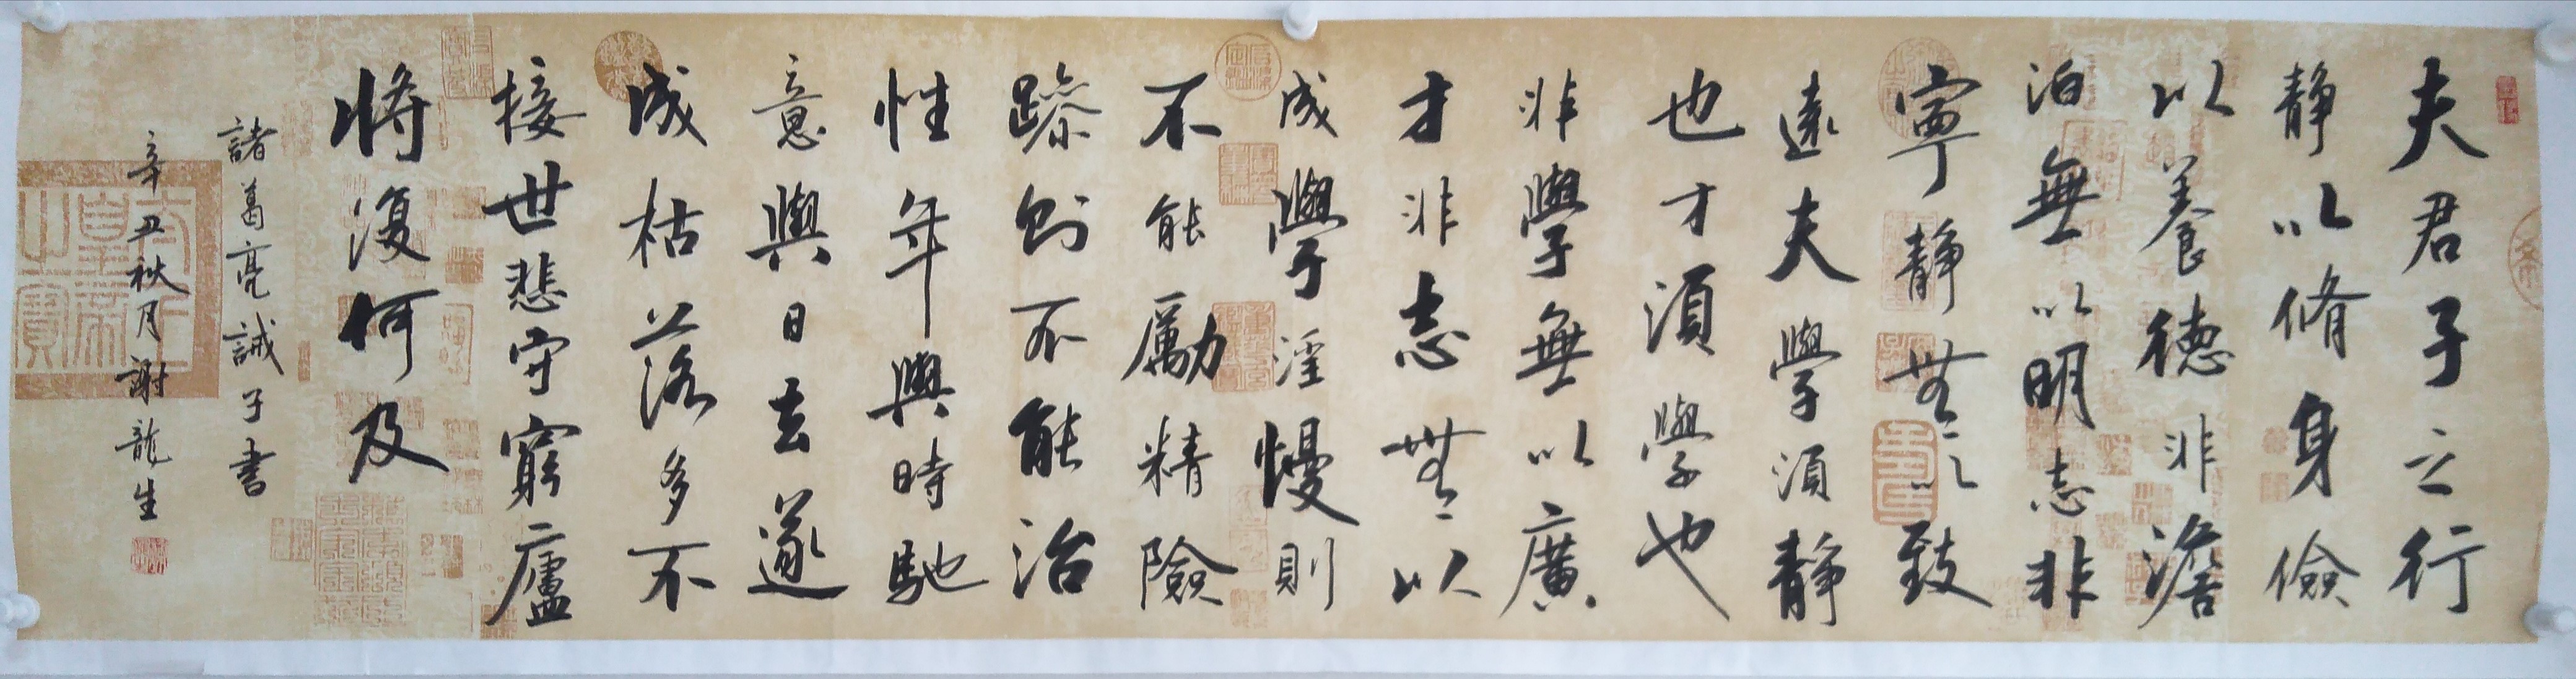 夫君子之行
静以脩身儉
以養德非澹
泊無以明志非
寧静無以致
遠夫學須静
也才須學也
非學無以廣
才非志無以
成學淫慢則
不能勵精險
躁則不能治
性年與時馳
意與日去遂
成枯落多不
接世悲守窮廬
將復何及
諸葛亮誡子書
辛丑秋月謝龍生
太上皇帝之寶